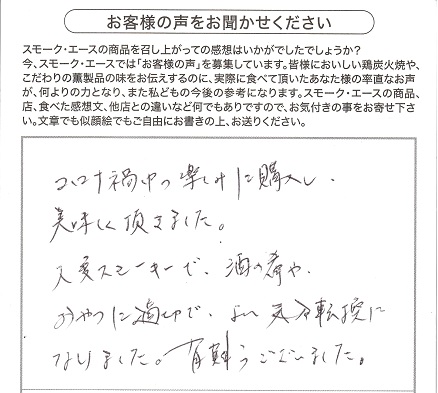 お客様の声をお聞かせください
スモーク・エースの商品を召し上がっての感想はいかがでしたでしょうか?
今、スモーク・エースでは「お客様の声」を募集しています。皆様においしい鶏炭火焼や、
こだわりの薫製品の味をお伝えするのに、実際に食べて頂いたあなた様の率直なお声
が、何よりの力となり、また私どもの今後の参考になります。スモーク・エースの商品、
店、食べた感想文、他店との違いなど何でもありですので、お気付きの事をお寄せ下さ
い。文章でも似顔絵でもご自由にお書きの上、お送りください。
コロナ禍中の楽しみに購入し、
美味しく頂きました。
大変スモーキーで、酒の肴や、
おやつに適切で、よい気分転換に
なりました。有難うございました。